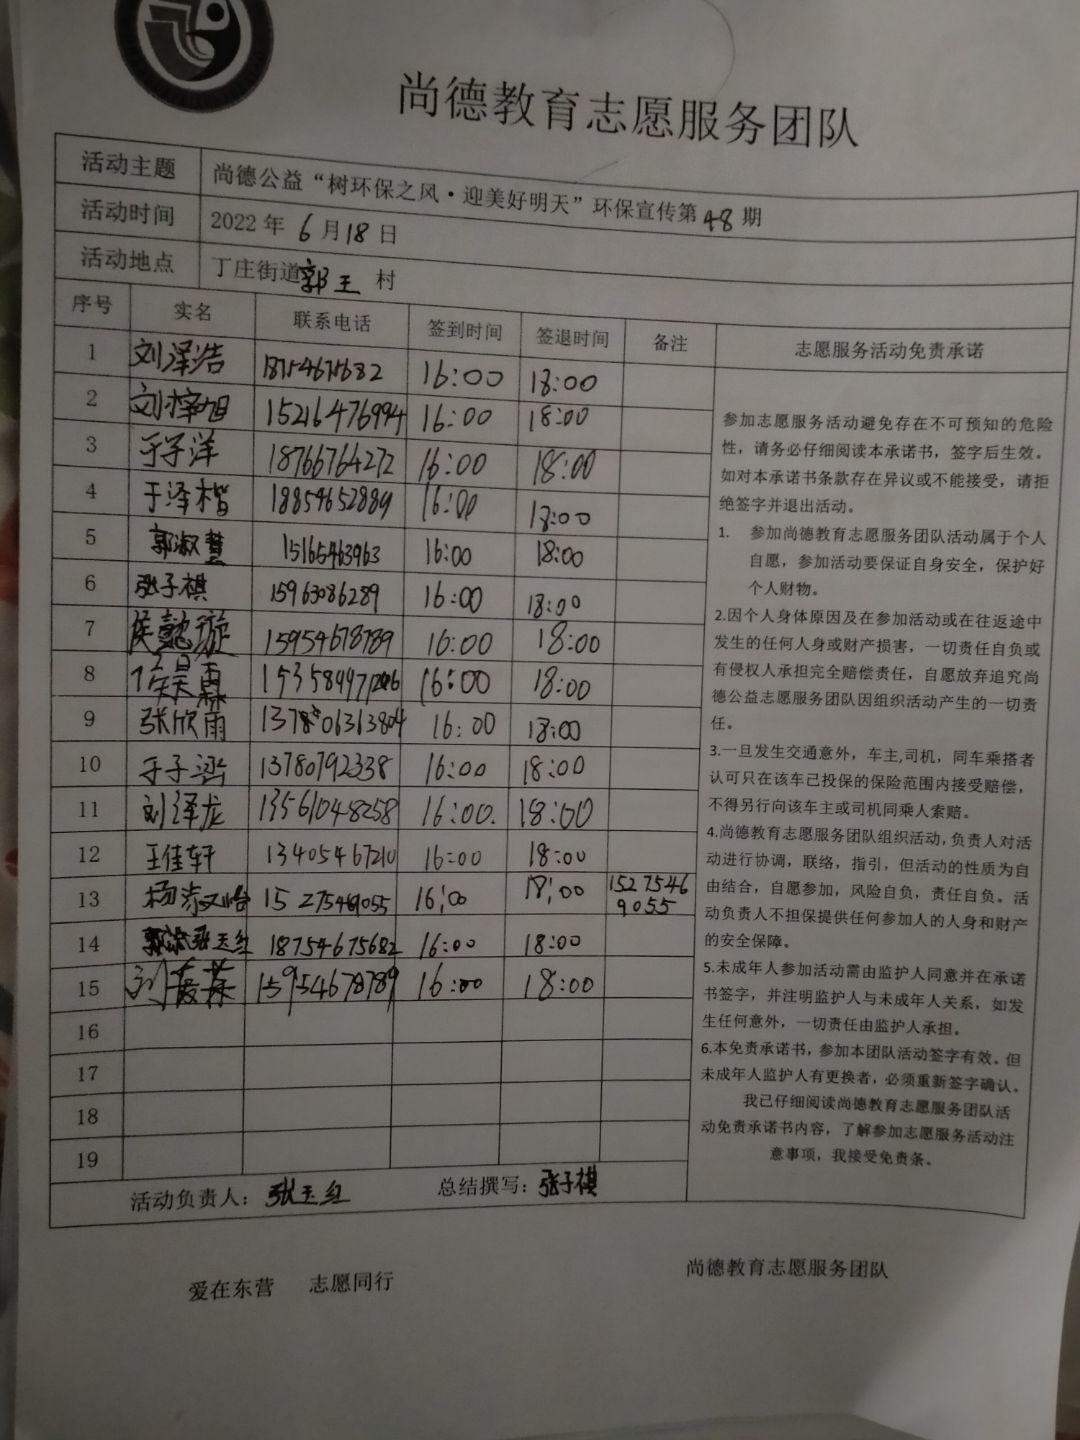 尚德教育志愿服务团队
活动主题 尚德公益“树环保之风·迎美好明天”环保宣传第48期
活动时间 2022年6月18日
活动地点 丁庄街道郭王村
序号 实名 联系电话 签到时间 签退时间 备注 志愿服务活动免责承诺
1 刘泽浩 18754675682 16:00 18:00
2 刘梓旭 15216476994 16:00 18:00
3 于子洋 18766764272 16:00 18:00
4 于泽楷 18854652889 16:00 18:00
5 郭淑慧 15165463963 16:00 18:00
6 张子棋 15963086289 16:00 18:00
7 侯懿璇 15954678789 16:00 18:00
8 16:00 18:00
9 张欣雨 16:00 18:00
10 于子涵 13780792338 16:00 18:00
11 刘泽龙 13561048258 16:00. 18:00
12 王佳轩 13405467210 16:00 18:00
13 15275469055 16:00 18:00 1527546
9055
14 张玉红 18754675682 16:00 18:00
15 15954678789 16:00 18:00
16
17
18
19
参加志愿服务活动避免存在不可预知的危险
性，请务必仔细阅读本承诺书，签字后生效。
如对本承诺书条款存在异议或不能接受，请拒
绝签字并退出活动。
1. 参加尚德教育志愿服务团队活动属于个人
自愿，参加活动要保证自身安全，保护好
个人财物。
2.因个人身体原因及在参加活动或在往返途中
发生的任何人身或财产损害，一切责任自负或
有侵权人承担完全赔偿责任，自愿放弃追究尚
德公益志愿服务团队因组织活动产生的一切责
任。
3.一旦发生交通意外，车主,司机，同车乘搭者
认可只在该车已投保的保险范围内接受赔偿，
不得另行向该车主或司机同乘人索赔。
4.尚德教育志愿服务团队组织活动,负责人对活
动进行协调，联络，指引，但活动的性质为自
由结合，自愿参加，风险自负，责任自负。活
动负责人不担保提供任何参加人的人身和财产
的安全保障。
5.未成年人参加活动需由监护人同意并在承诺
书签字，并注明监护人与未成年人关系，如发
生任何意外，一切责任由监护人承担。
6.本免责承诺书，参加本团队活动签字有效。但
未成年人监护人有更换者，必须重新签字确认。
我已仔细阅读尚德教育志愿服务团队活
动免责承诺书内容，了解参加志愿服务活动注
意事项，我接受免责条。
活动负责人：张玉红 总结撰写：张子棋
爱在东营 志愿同行 尚德教育志愿服务团队